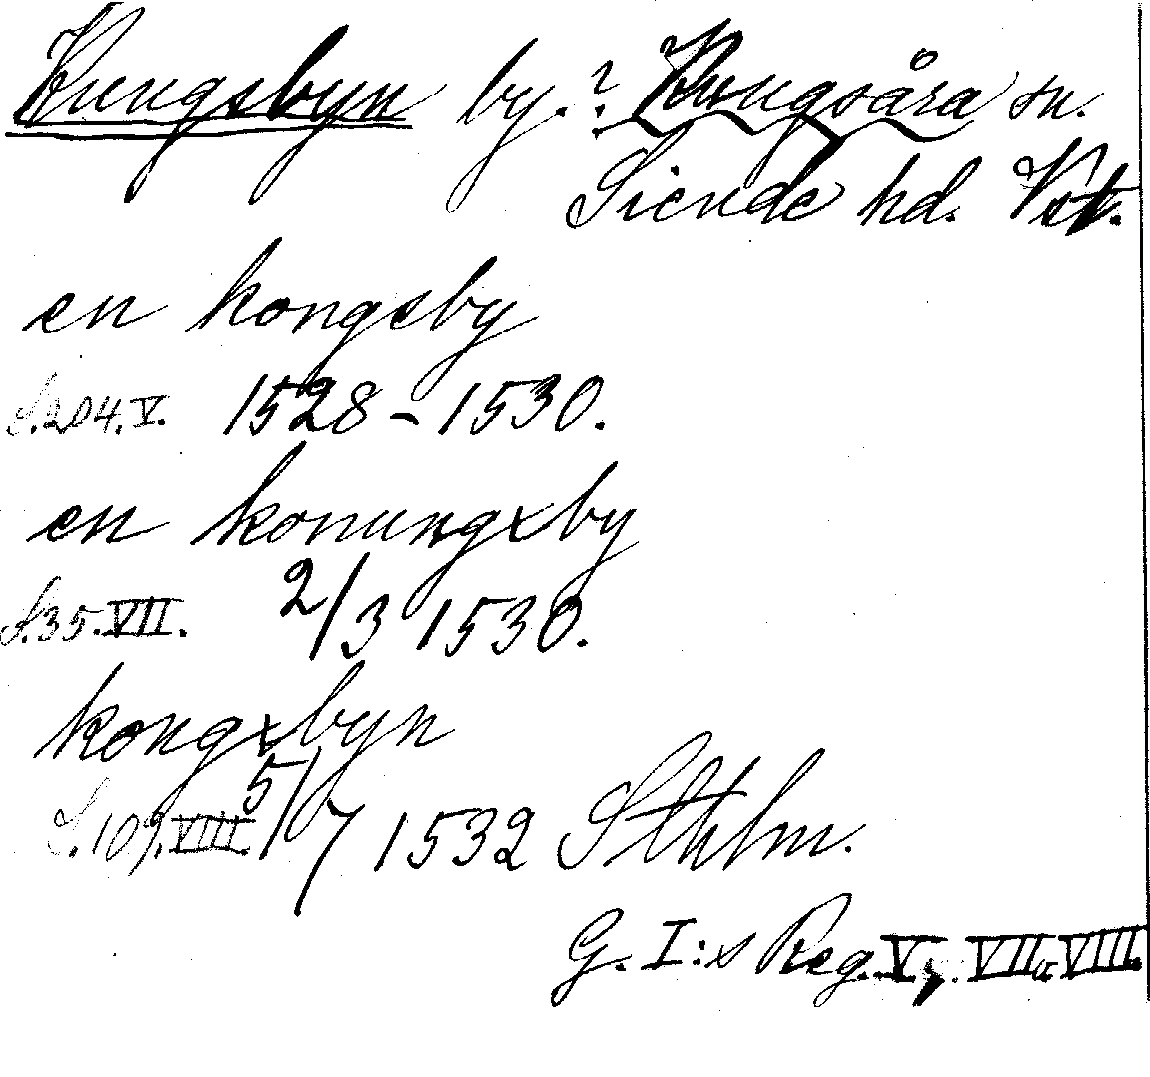 Kungsbyn by. ? Kungsåra sn.
Siende hd. Vst.
en kongsby
S. 204. V. 1528-1530.
en konungxby
S. 35. VII. 2/3 1530.
kongxbyn
S. 109. VIII. 5/7 1532 Sthlm.
G. I:s Reg. V, VII o VIII.